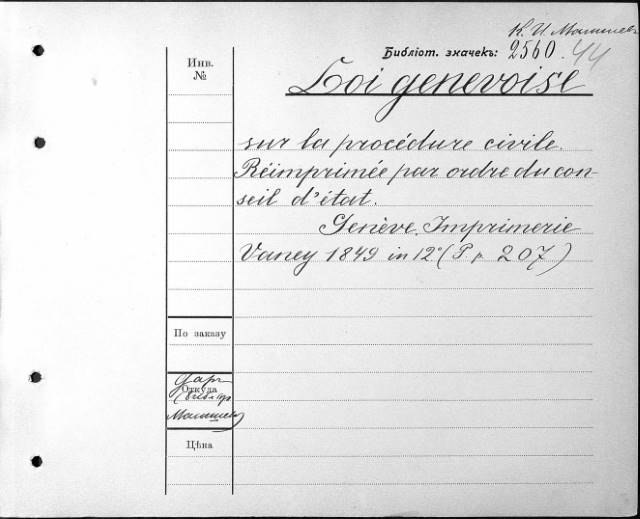 К. И. Малышевъ
Библіот. значекъ: 2560. 44
Инв.
№
Loi genevoise
sur la procédure civile.
Réimprimée par ordre du con-
seil d'état.
Genève. Imprimerie
Vaney 1849 in 12° (P. p. 207)
По заказу
Даръ
Откуда
Малышева
Цѣна